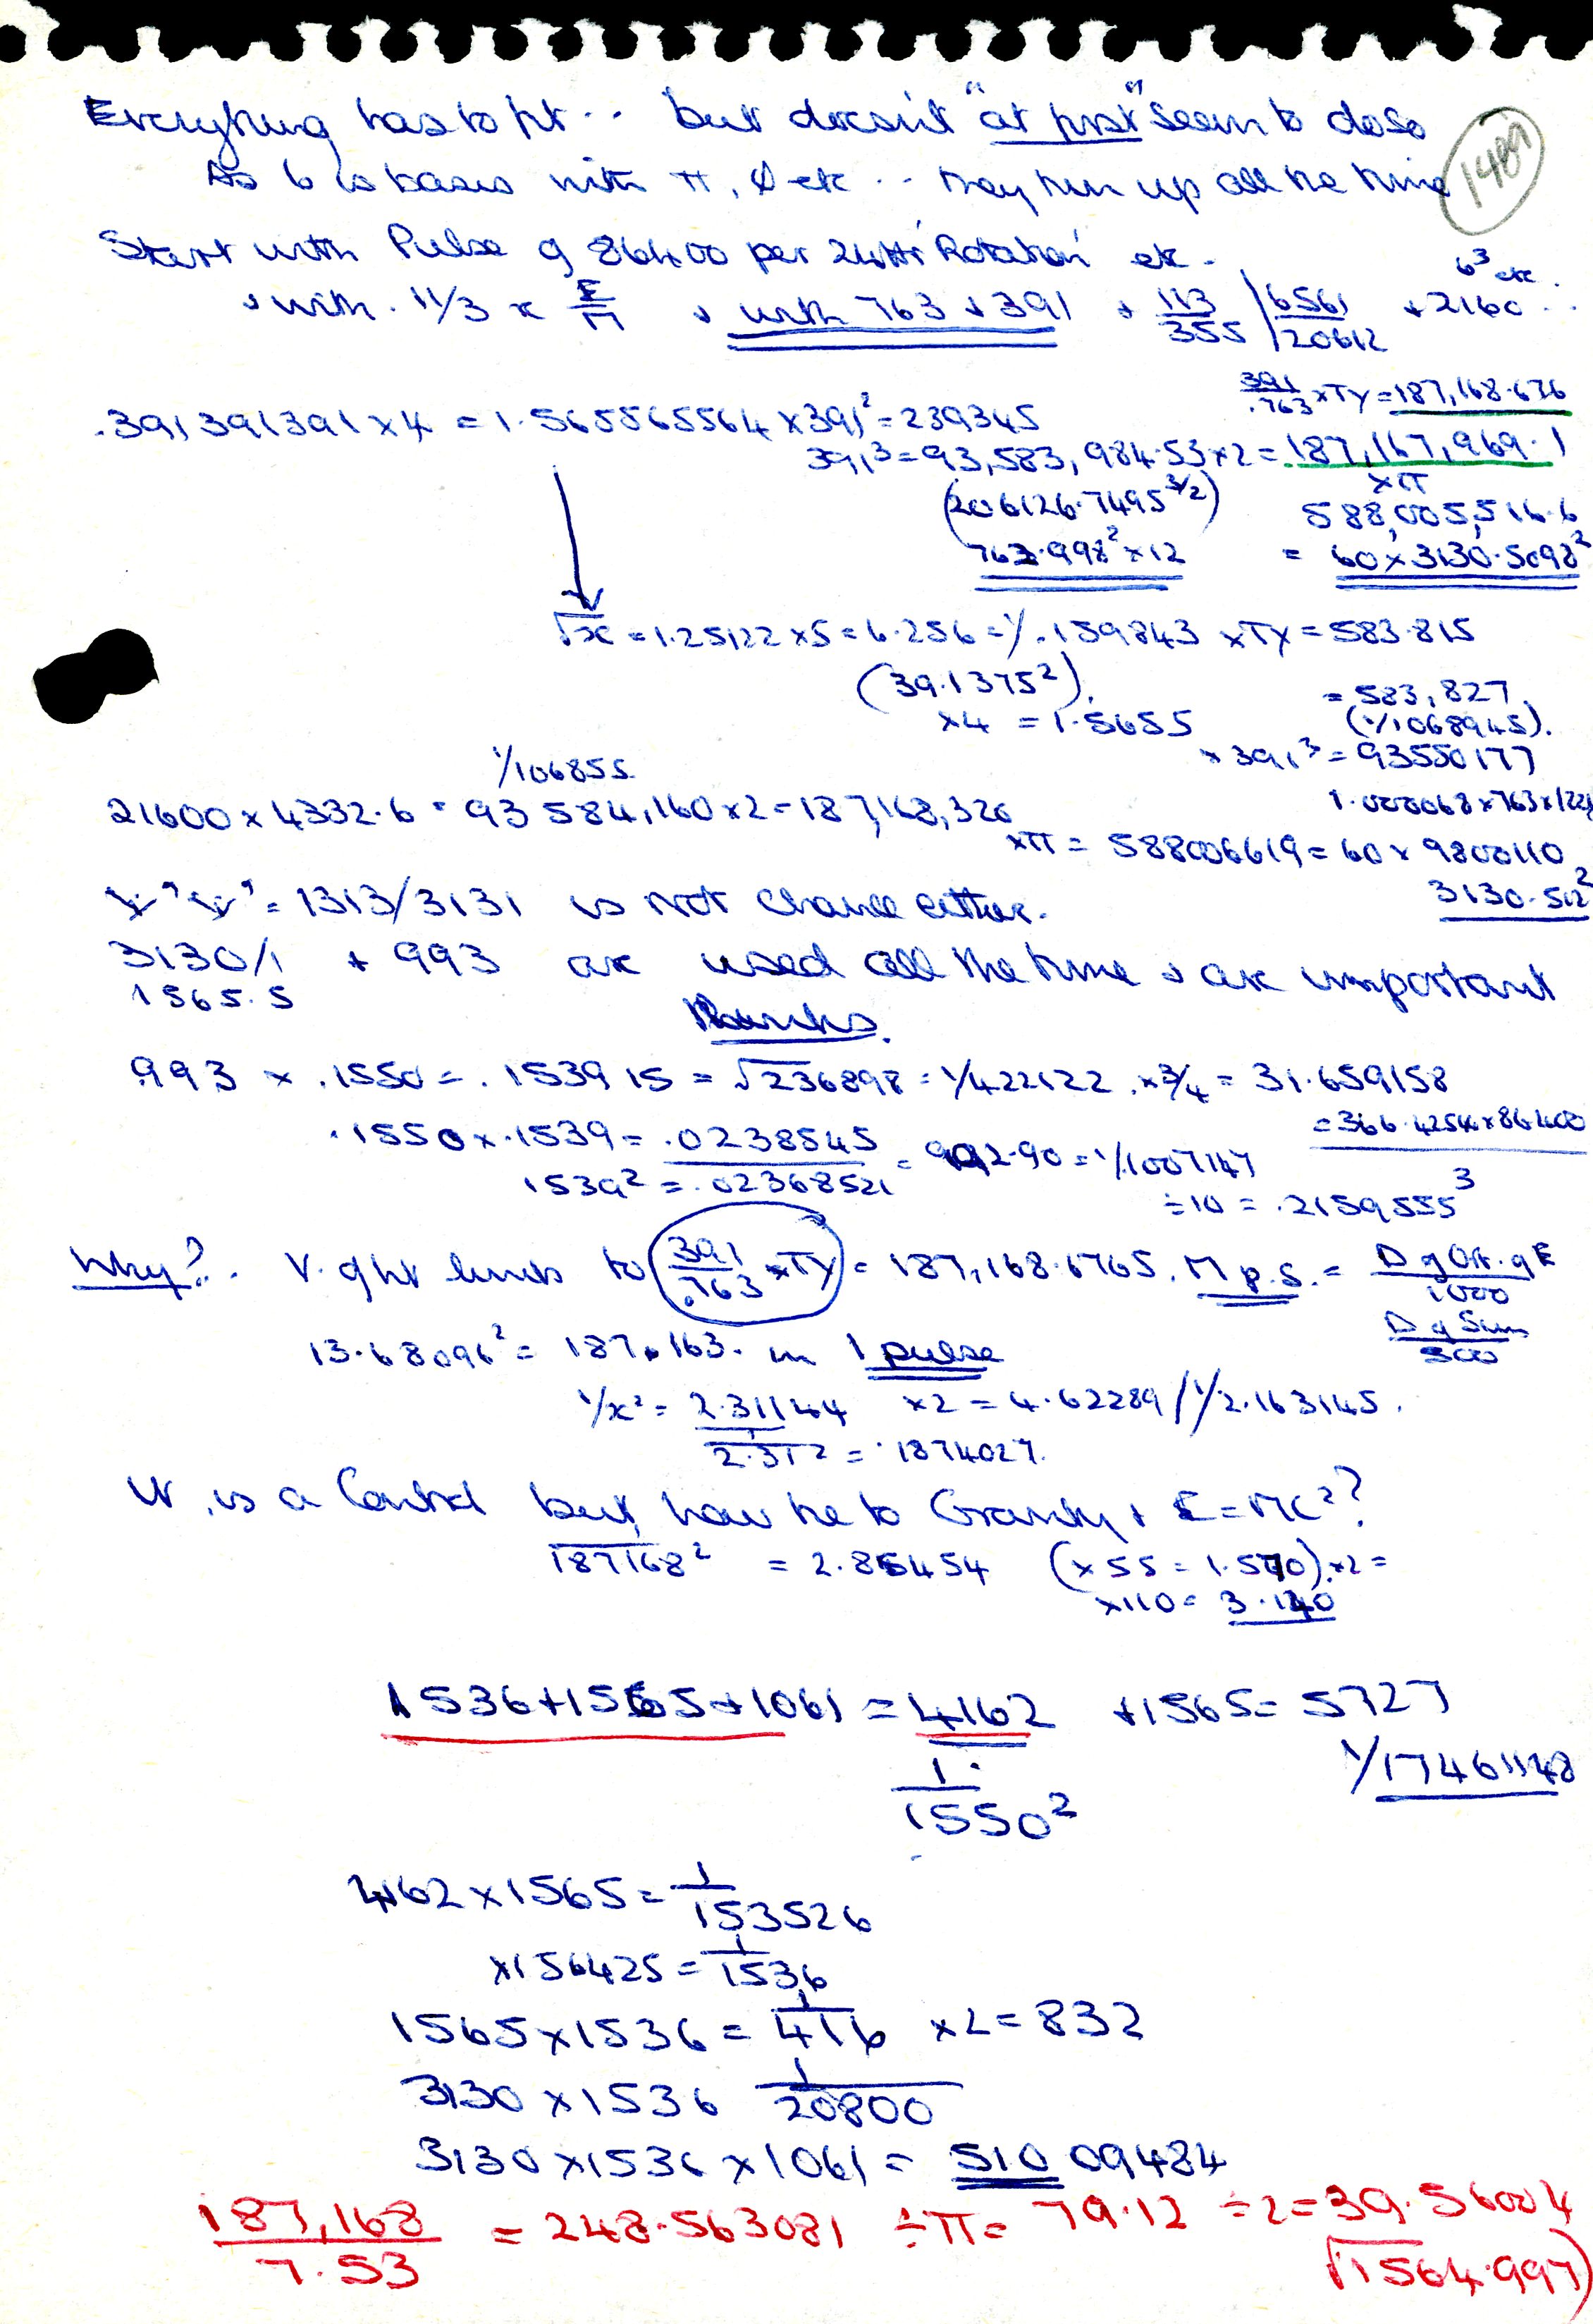 Everything has to fit .. but doesn't "at first" seem to do so
1489
As 6 is basis with π, φ etc .. they turn up all the time
Start with Pulse of 86400 per 24Hr 'Rotation' etc.
+ with . 11/3 x E/M + with 763 + 391 + 113/355 | 6561/20612 + 2160 .. 6³ etc.
391/.763 x TY = 187,168.676
.391391391 x 4 = 1.565565564 x 391² = 239345
391³ = 93,583,984.53 x 2 = 187,167,969.1
(206126.7495 3/2) x π
588,005,516.6
763.998² x 12 = 60 x 3130.5098²
√x = 1.25122 x 5 = 6.256 = 1/.159843 x TY = 583.815
(39.1375²) = 583,827
x 4 = 1.5655 (1/1068945).
x 391³ = 93550177
1/106855
21600 x 4332.6 = 93 584,160 x 2 = 187,168,320
1.000068 x 763 x 122
x π = 588006619 = 60 x 9800110
3130.512²
= 1313/3131 is not chance either.
3130/1 + 993 are used all the time + are important
1565.5
Thanks.
.993 x .1550 = .153915 = √236898 = 1/422122 . x 3/4 = 31.659158
= 366.4254 x 86400
.1550 x .1539 = .0238545
1539² = .02368521
= 992.90 = 1/1007147
÷ 10 = .2159555³
Why? . V. of ght links to (391/.763 x TY) = 187,168.6765. M p.s. = D of Orb. of E/1000
D of Sun/500
13.68096² = 187.163. in 1 pulse
1/x² = 2.31144 x 2 = 4.62289 / 1/2.163145.
1/2.312 = .1874027
V. is a Control but how tie to Gravity + E = MC²?
187168² = 2.85454 (x 55 = 1.570) . x 2 =
x 110 = 3.140
1536 + 1565 + 1061 = 4162 + 1565 = 5727
1/17461148
1/1550²
4162 x 1565 = 1/153526
x 156425 = 1/1536
1565 x 1536 = 1/416 x 2 = 832
3130 x 1536 1/20800
3130 x 1536 x 1061 = 510 09484
187,168/7.53 = 248.563081 ÷ π = 79.12 ÷ 2 = 39.56004
√1564.997)